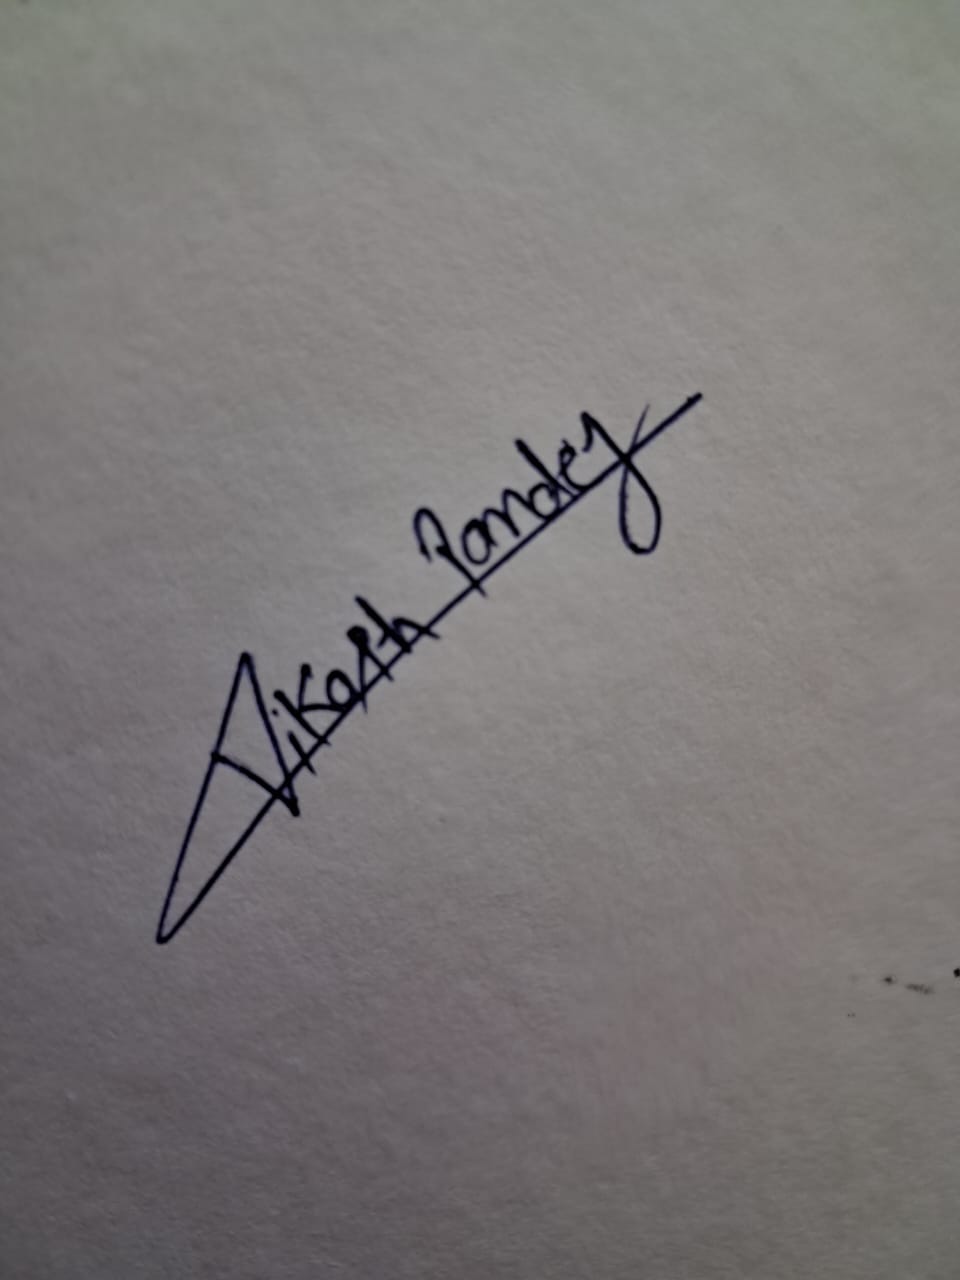 Vikash Pandey